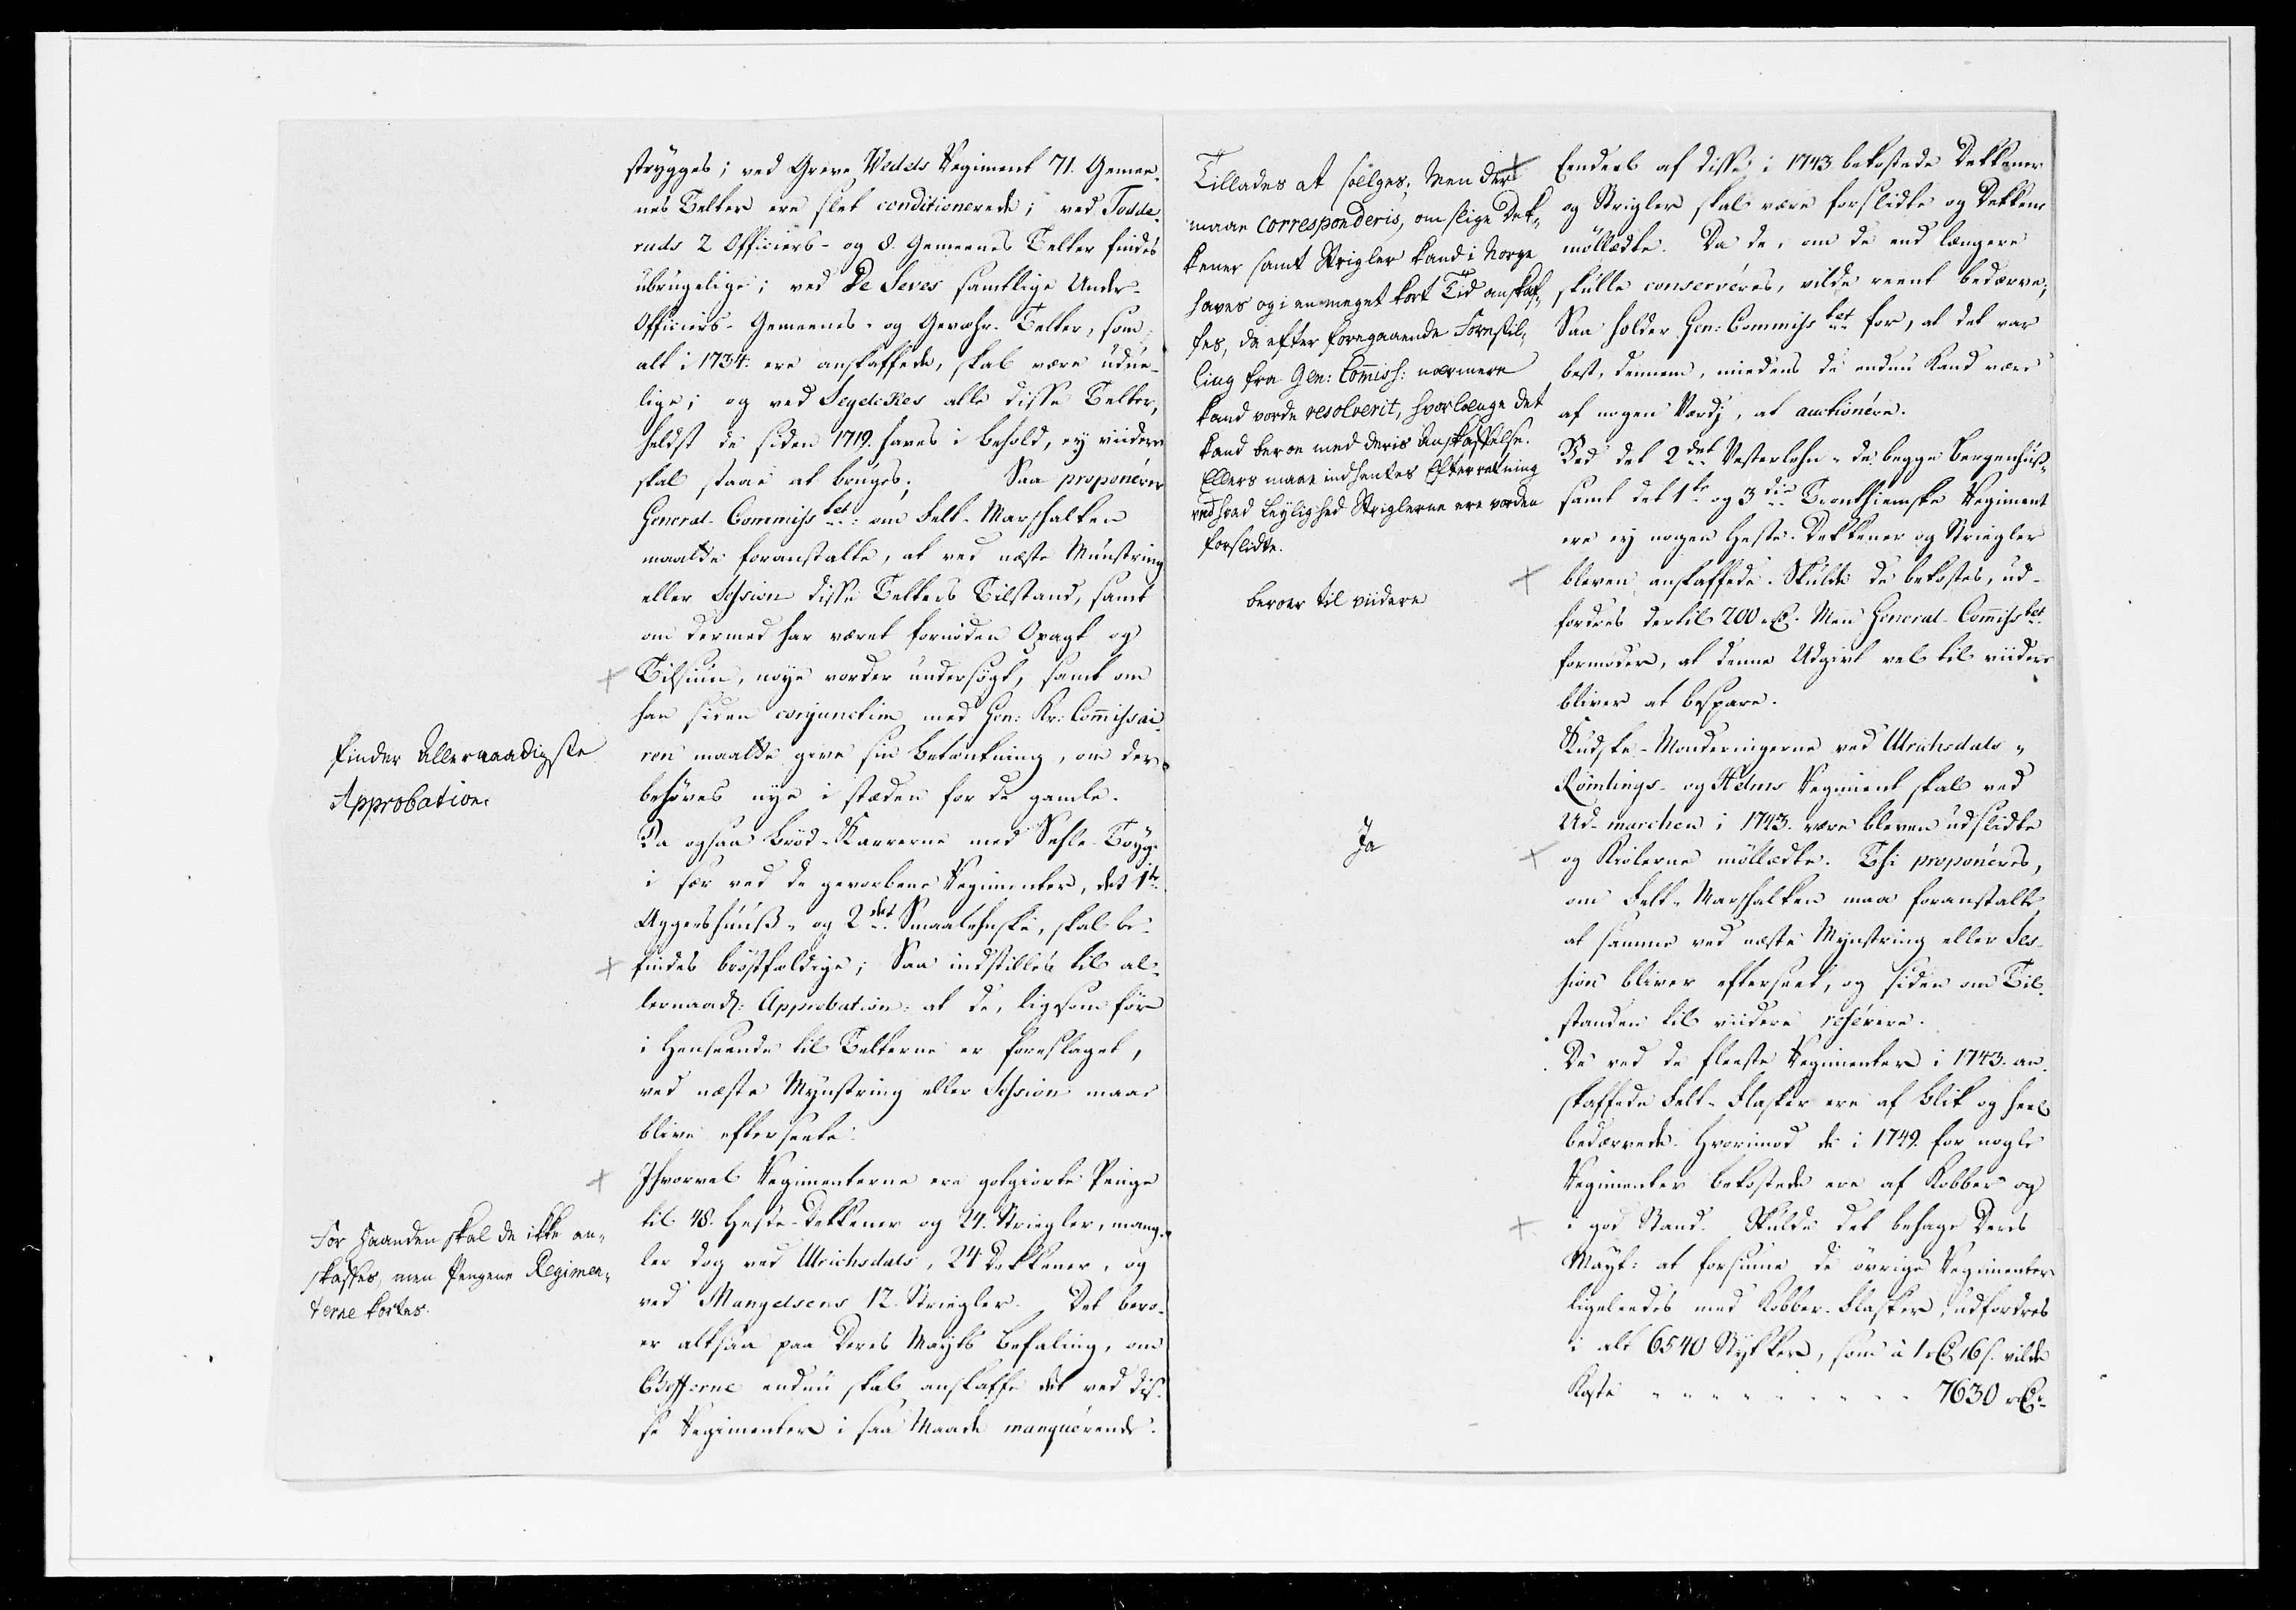 strygges; ved Greve Wedels Regiment 71. Gemee-
nes Telter ere slet conditionerede; ved Todde-
ruds 2 Officiers- og 8. Gemeenes Telter findes
ubrugelige; ved De Seves samtlige Under-
Officiers- Gemeenes- og Gevæhr-Telter, som
alt i 1734. ere anskaffede, skal være udue-
lige; og ved Seydlekes alle disse Telter,
heldst de siden 1719. haves i behold, ey viidere
skal staae at bruges; Saa proponérer
General-Commiss tet: om Felt-Marschalken
maatte foranstalte, at ved næste Münstring
eller Session disse Telters Tilstand, samt
om dermed har været fornøden Opagt og
+ Tilsiun, nøye vorder undersøgt, samt om
han siden conjunctim med Gen: Kr: Commissai-
ren maatte give sin betænkning, om der
behøves nye i stæden for de gamle.
Finder Allernaadigste
Approbation.
Da ogsaa Brød-Karrerne med Sehle-Tøyg
i sær ved de gevorbene Regimenter, det 1te
Aggershuuss- og 2det Smaalehnske, skal be-
+ findes brøstfældige; Saa indstilles til al-
lernaad: Approbation: at de, ligesom før
i Henseende til Telterne er foreslaget,
ved næste Mynstring eller Session maae
blive efterseete.
+ Ihvorvel Regimenterne ere gotgiorte Penge
til 48. Heste-Dekkener og 24. Striegler, mang-
ler dog ved Ulrichsdals, 24 Dekkener, og
ved Mangelsens 12. Striegler. Det bero-
er altsaa paa Deres Mayts Befaling, om
Chefferne endnu skal anskaffe det ved dis-
se Regimenter i saa Maade manquerende.
For Haanden skal de ikke an-
skaffes, men Pengene Regimen-
terne kortes.
Tillades at sælges; Men der +
maae corresponderis, om slige Dek-
kener samt Strigler kand i Norge
haves og i en meget kort Tid anskaf-
fes, da efter foregaaende Forestil-
ling fra Gen: Comiss: nærmere
kand vorde resolverit, hvorlænge det
kand beroe med deris Anskaffelse.
Ellers maae indhentes Efterretning
ved hvad Leylighed Striglerne ere vorden
forslidte.
beroer til viidere
Ja
Eendeel af disse i 1743 bekostede Dekkener
og Strigler skal være forslidte og Dekkene
møllædte. Da de, om de end længere
skulle conservéres, vilde reent bedærve;
Saa holder Gen: Commiss tet for, at det var
best, dennem, miedens de endnu kand være
af nogen Værdi, at auctionére.
Ved det 2det Vesterlehn- de begge Bergenhuss-
samt det 1te og 3die Tronthiemske Regiment
ere ey nogen Heste-Dekkener og Striegler
+ bleven anskaffede. Skulde de bekostes, ud-
fordres dertil 200 rd. Men General-Comiss tet
formoder, at denne Udgivt vel til viidere
bliver at bespare.
Kudske-Monderingerne ved Ulrichsdals-
Römlings- og Helms Regiment skal ved
Ud-marchen i 1743. være bleven udslidte
+ og Kiolerne møllædte. Thi proponéres,
om Felt-Marschalken maa foranstalte
at samme ved næste Mynstring eller Ses-
sion bliver efterseet, og siden om Til-
standen til viidere referere.
De ved de fleeste Regimenter i 1743. an-
skaffede Felt-Flasker ere af Blik og heel
bedærvede. Hvorimod de i 1749. for nogle
Regimenter bekostede ere af Kobber og
+ i god Stand. Skulde det behage Deres
Mayt: at forsiune de øvrige Regimenter
ligeleedes med Kobber-Flasker, udfordres
i alt 6540 Stykker, som à 1 rd 16 s. vilde
koste - - - - - - - - - 7630 rd